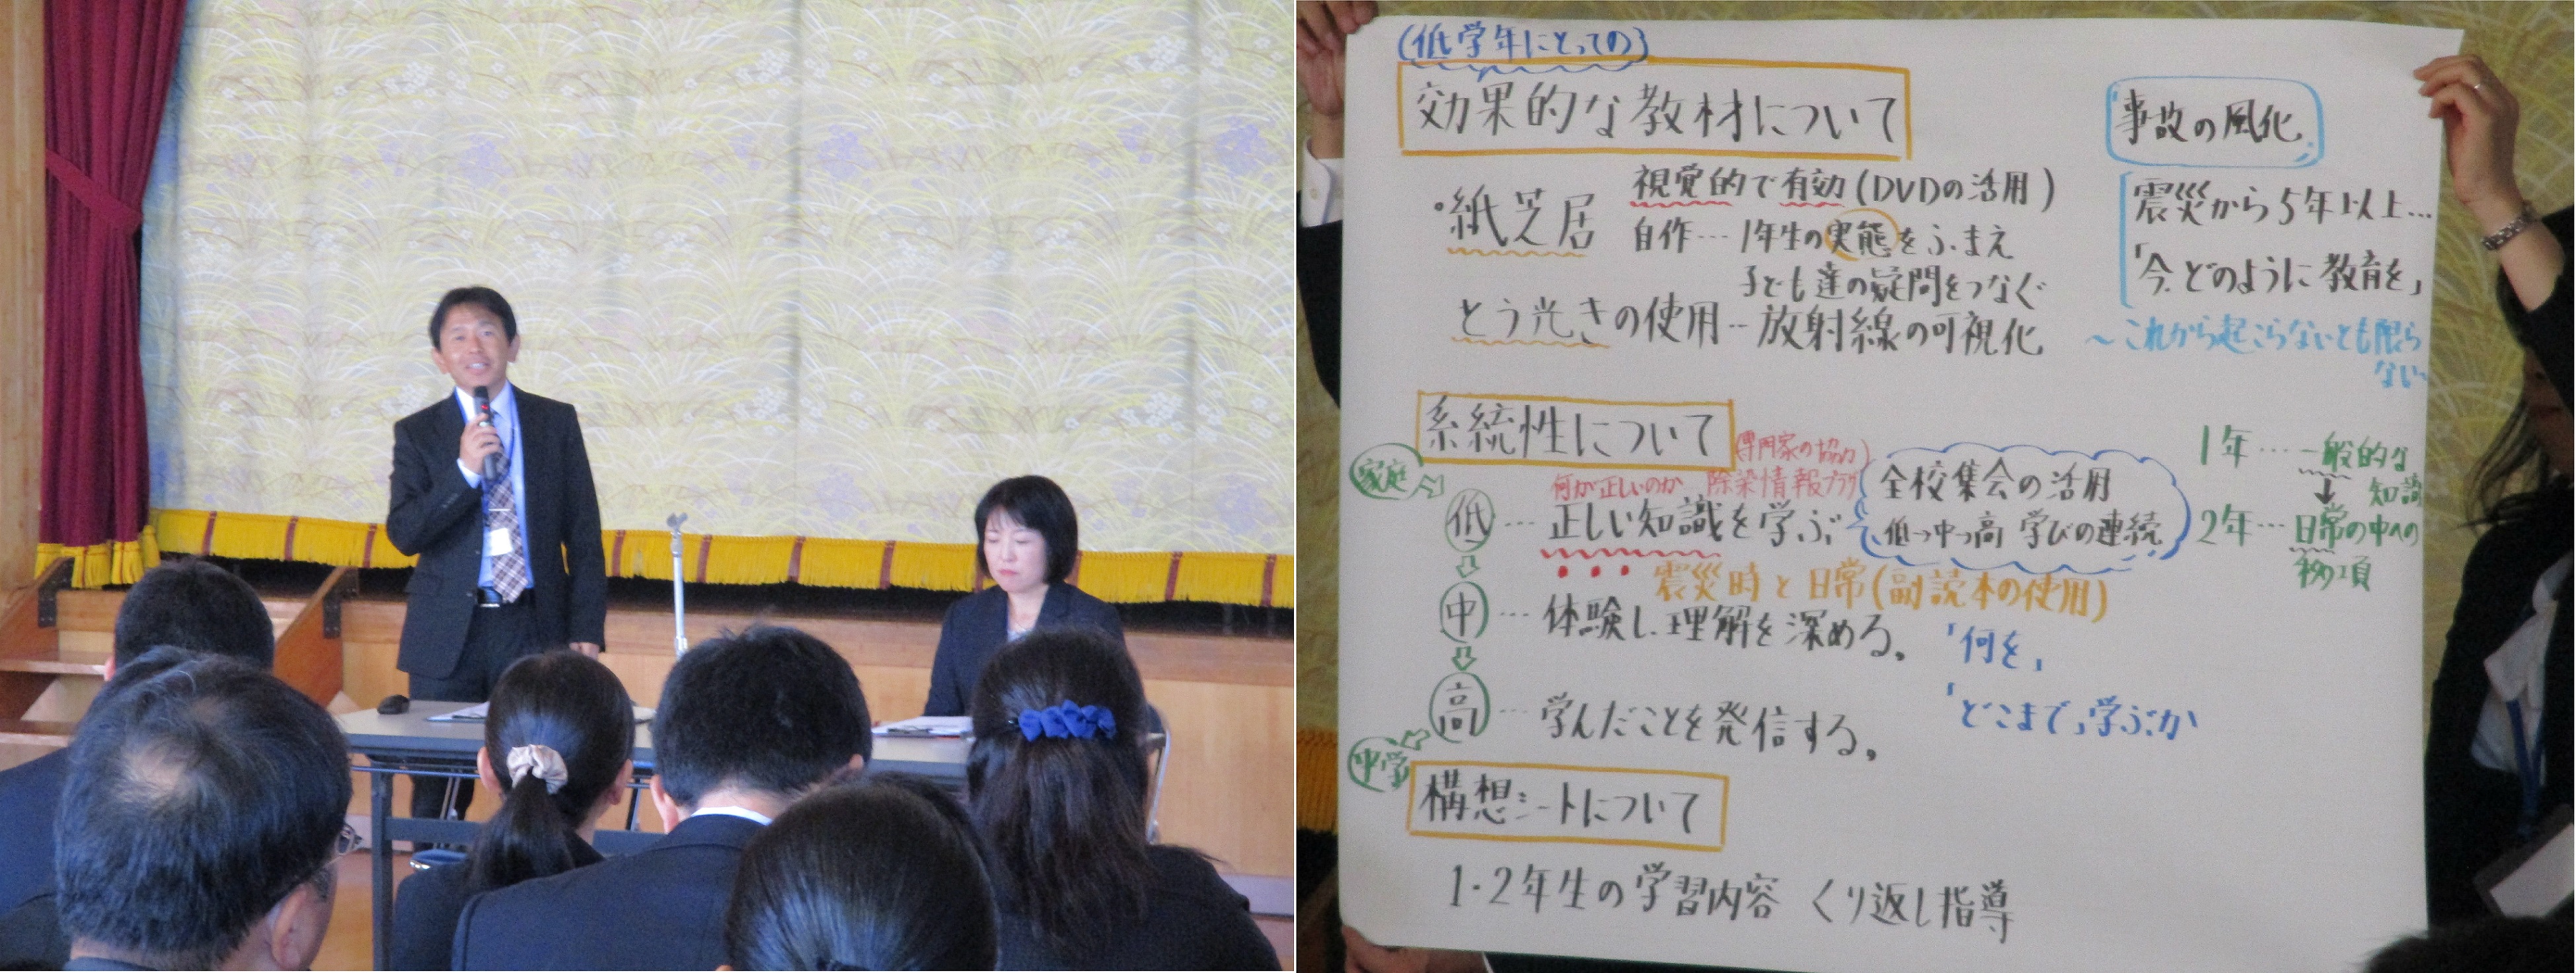 (低学年にとっての)
効果的な教材について
・紙芝居
視覚的で有効(DVDの活用)
自作…1年生の実態をふまえ
子ども達の疑問をつなぐ
とう光きの使用…放射線の可視化
事故の風化
震災から5年以上…
「今、どのように教育を」
～これから起こらないとも限ら
ない～
系統性について
(専門家の協力)
家庭
何が正しいのか 除染情報プラザ
低…正しい知識を学ぶ
全校集会の活用
低→中→高 学びの連続
1年…一般的な
知識
2年…日常の中への
震災時と日常(副読本の使用)
中…体験し、理解を深める。
「何を」
高…学んだことを発信する。
「どこまで」学ぶか
中学
構想シートについて
1・2年生の学習内容 くり返し指導